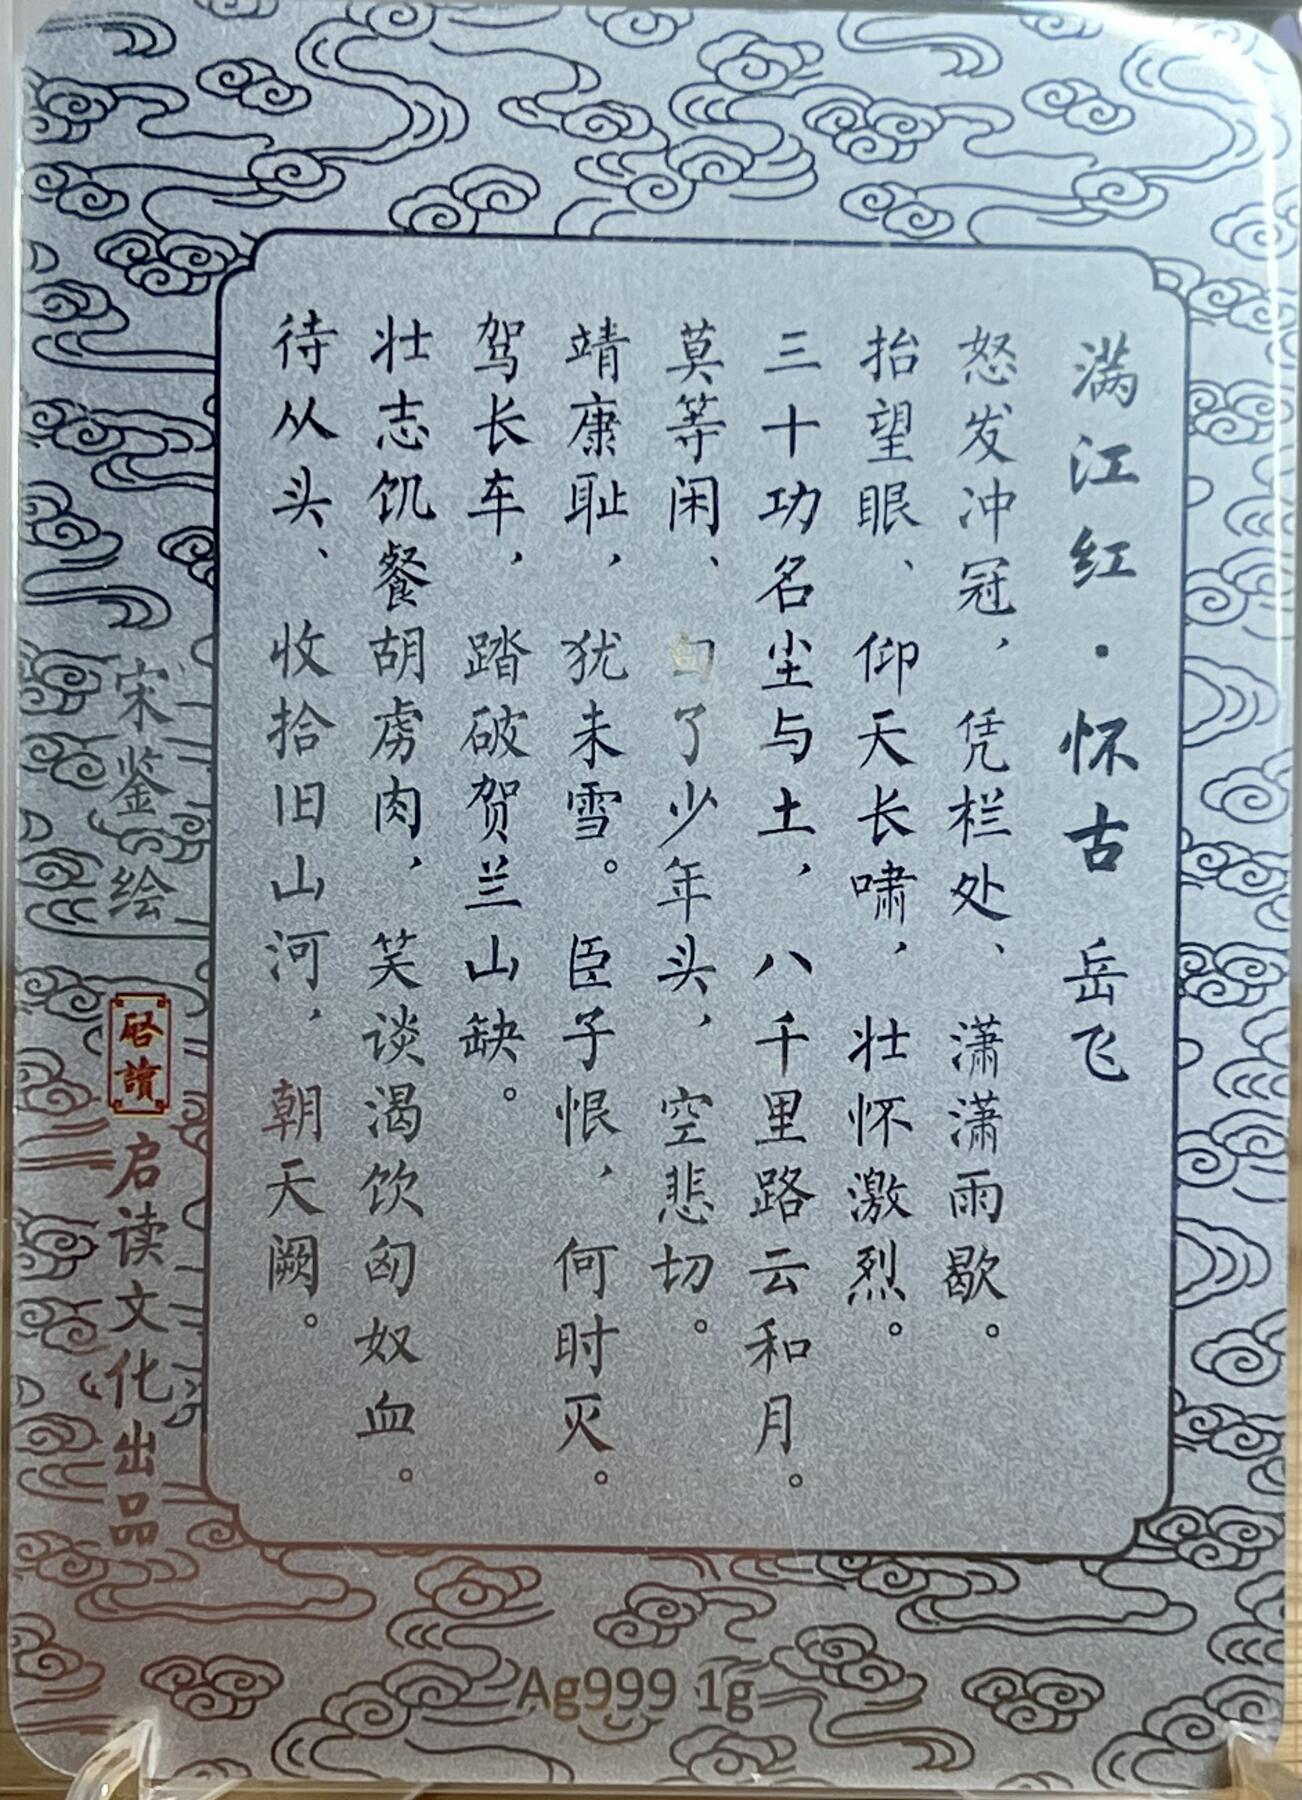 满江红·怀古 岳飞
怒发冲冠，凭栏处、潇潇雨歇。
抬望眼、仰天长啸，壮怀激烈。
三十功名尘与土，八千里路云和月。
莫等闲、了少年头，空悲切。
靖康耻，犹未雪。臣子恨，何时灭。
驾长车，踏破贺兰山缺。
壮志饥餐胡虏肉，笑谈渴饮匈奴血。
待从头、收拾旧山河，朝天阙。
宋鉴 绘
啓讀
启读文化出品
Ag999 1g